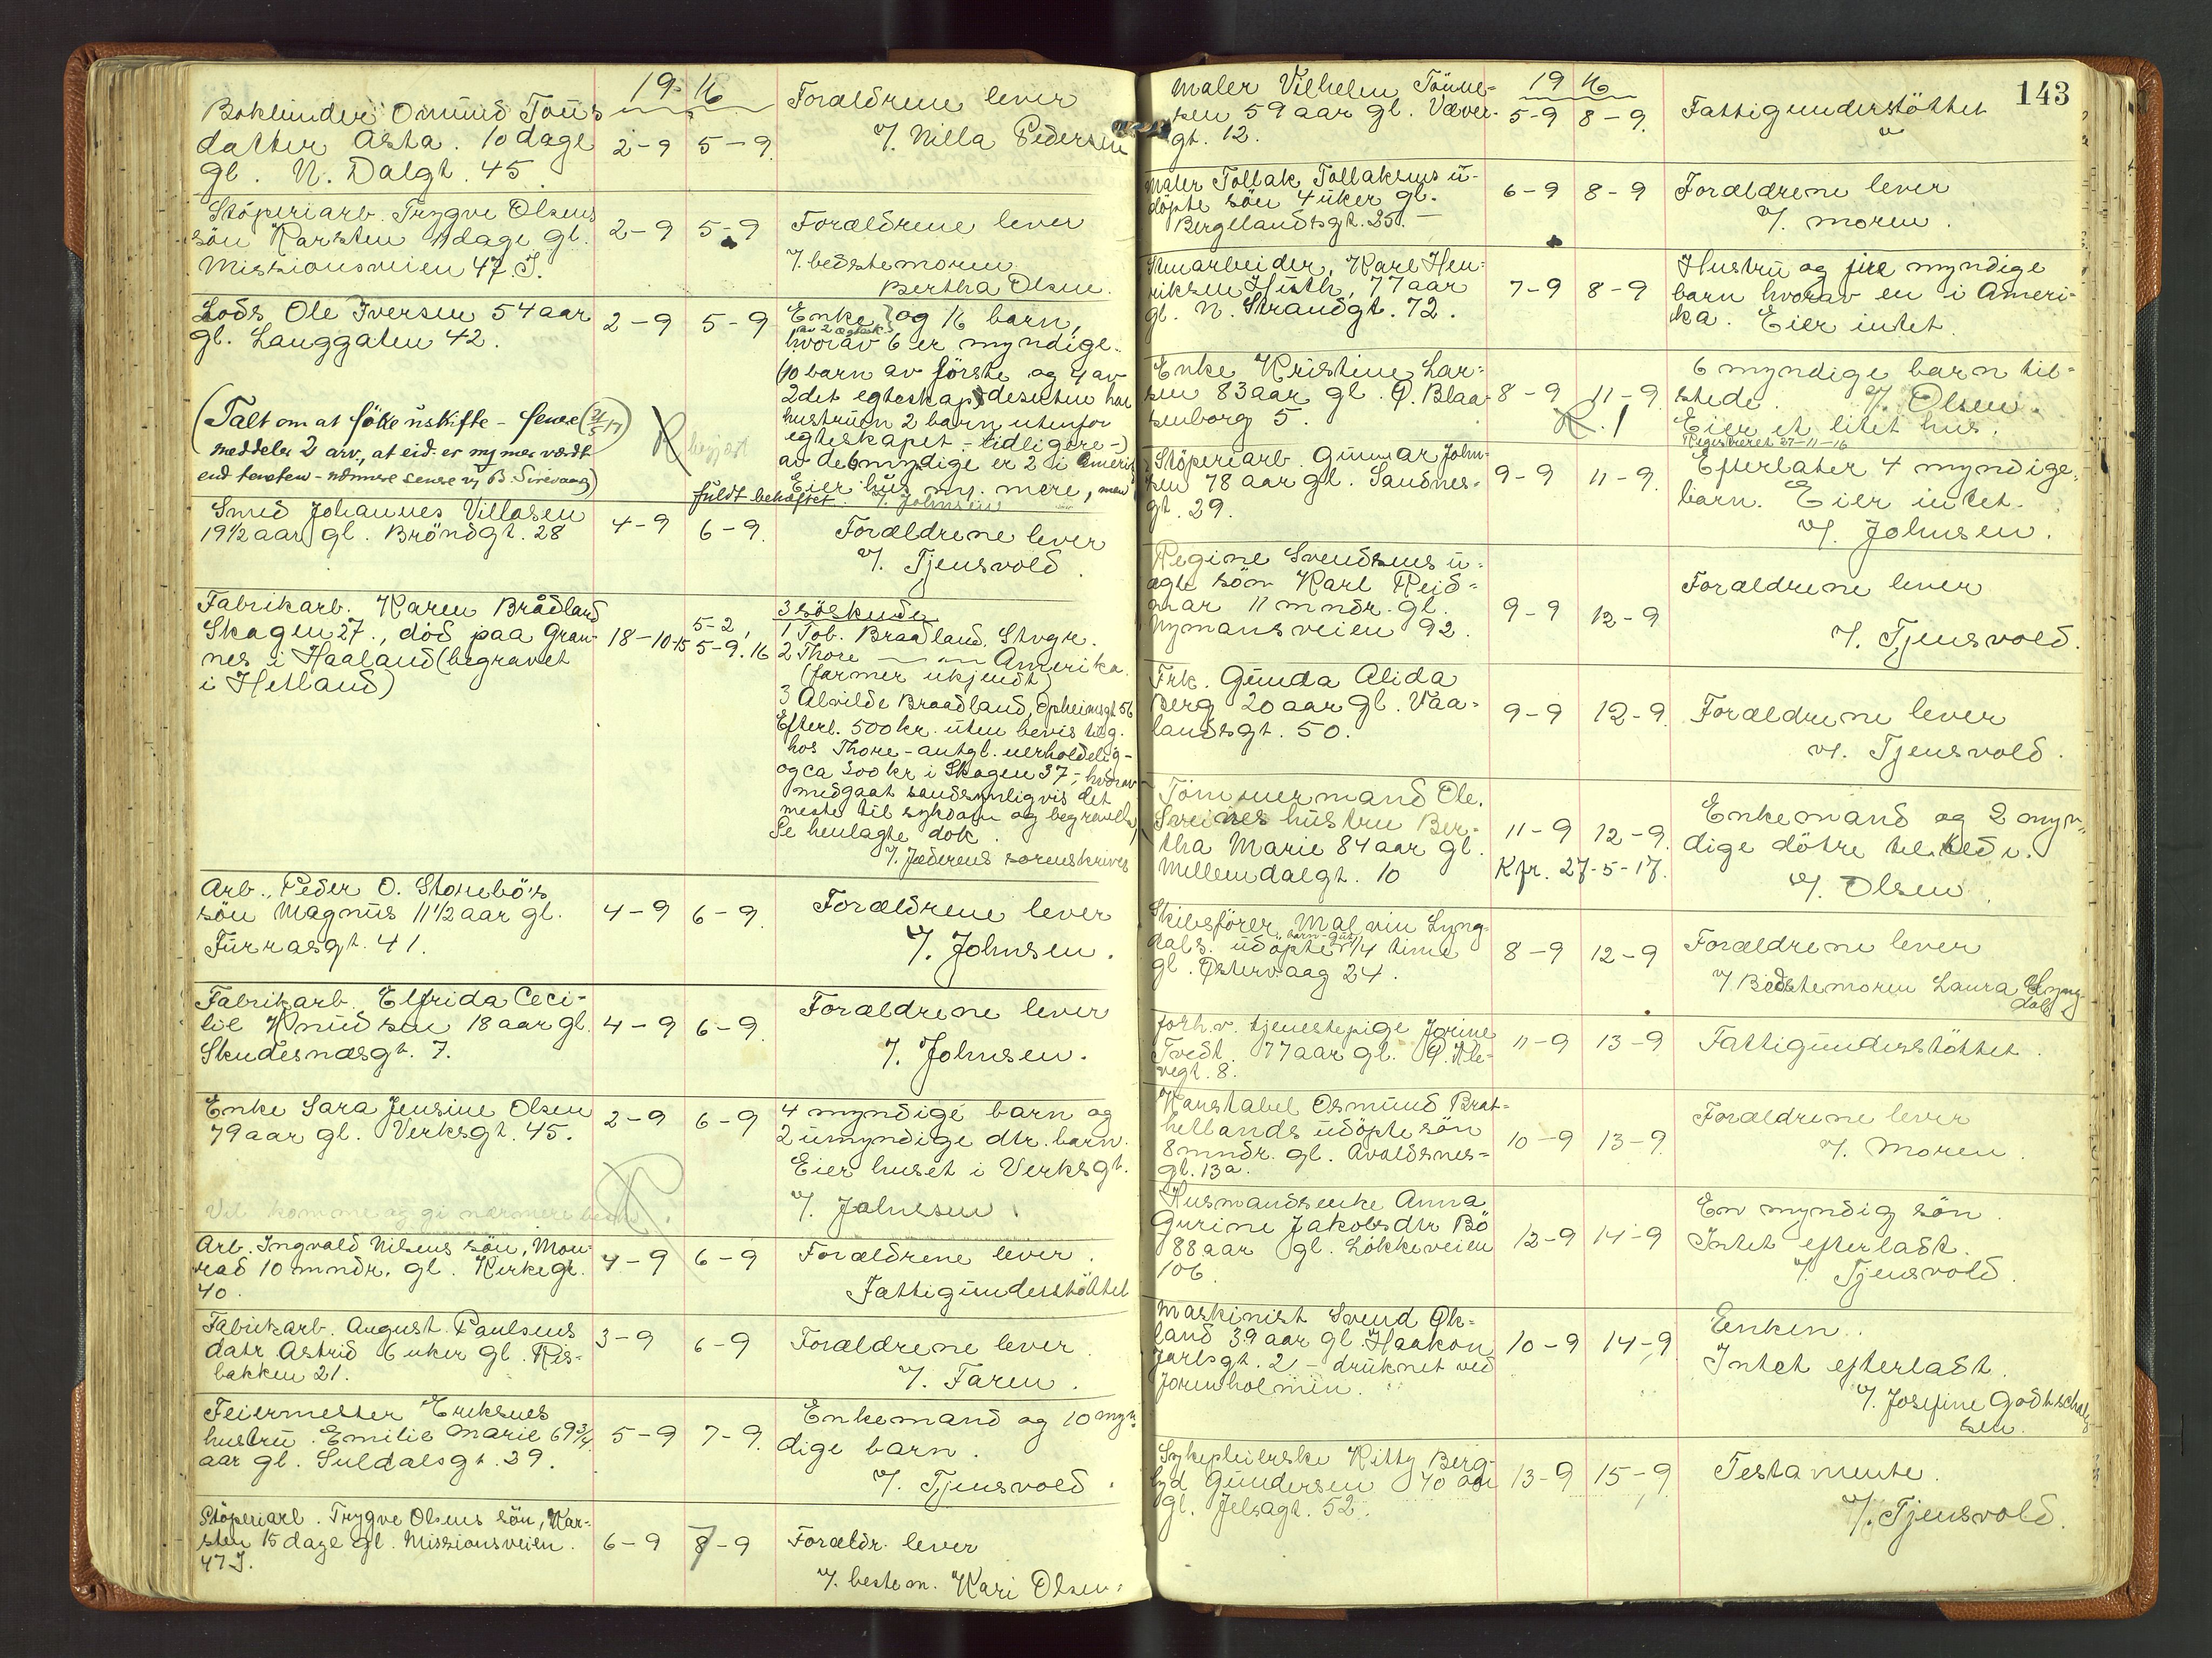 19 16
Boktrykker Omund Tous
datter Asta. 10 dage
gl. N. Dalgt. 45
2-9 5-9
Forældrene lever
V. Nilla Pedersen
Stöperiarb. Trygve Olsens
sön Karsten 11 dage gl.
Missionsveien 47 I.
2-9 5-9
Forældrene lever
V. bedstemoren
Bertha Olsen.
Lods Ole Iversen 54 aar
gl. Langgaten 42.
2-9 5-9
Enke og 16 barn,
av 2 ægtesk.
hvorav 6 er myndige.
(10 barn av förste og 4 av
2det egteskap, desuten har
hustruen 2 barn utenfor
egteskapet - tidligere -)
av de 6 myndige er 2 i Amerika
Eier hus m. mere, men
fuldt beheftet. V. Johnsen
(Talt om at söke uskifte -
meddeler 2 arv, at eid. er my mer værdt
end taksten
B. Sirevaag)
R
Smed Johannes Villasen
19 1/2 aar gl. Bröndgt. 28
4-9 6-9.
Forældrene lever
V. Tjensvold.
Fabrikarb. Karen Brådland
Skagen 27., död paa Gran-
nes i Haaland (begravet
i Hetland)
18-10-15 5-2, 5-9.16
3 söskende
1 Tob. Braadland, Stvgr.
2 Thore —„— Amerika.
(farmer ukjendt)
3 Alvilde Braadland, Opheimsgt 56
Efterl. 500 kr. uten bevis tilg.
hos Thore - antgl. uerholdelig -
og ca 300 kr i Skagen 37, - hvorav
medgaat sandsynligvis det
meste til sykdom og begravelse,
Se henlagte dok.
V. Jæderens sorenskriver
Arb. Peder O. Stonebö's
sön Magnus 11 1/2 aar gl.
Furrasgt. 41.
4-9 6-9.
Forældrene lever
V. Johnsen.
Fabrikarb. Elfrida Ceci-
lie Knudsen 18 aar gl.
Skudesnæsgt. 7.
4-9 6-9.
Forældrene lever
V. Johnsen.
Enke Sara Jensine Olsen
79 aar gl. Verksgt. 45.
2-9 6-9
4 myndige barn og
2 umyndige dtr. barn.
Eier huset i Verksgt.
V. Johnsen.
Vil komme og gi nærmere
R
Arb. Ingvald Nilsens sön, Mon-
rad 10 mndr. gl. Kirkegt.
40.
4-9 6-9
Forældrene lever.
Fattigunderstöttet
Fabrikarb. August Paulsens
datr Astrid 6 uker gl. Ris-
bakken 21.
3-9 6-9
Forældrene lever.
V. Faren.
Feiermester Eriksens
hustru Emilie Marie 69 3/4
aar gl. Suldalsgt. 29.
5-9 7-9.
Enkemand og 10 myn
dige barn.
V. Tjensvold.
Stöperiarb. Trygve Olsens sön, Kar-
sten 15 dage gl. Missionsveien.
47 I.
6-9 7-9
Forældr. lever
V. bestem. Kari Olsen.
143
19 16
Maler Vilhelm Tönne-
sen 59 aar gl. Væver-
gt. 12.
5-9 8-9.
Fattigunderstöttet
Maler Tollak Tollaksens u-
döpte sön 4 uker gl.
Bergelandsgt. 25.
6-9 8-9
Forældrene lever
V. moren.
Stuarbeider, Karl Hen-
riksen Husth, 77 aar
gl. N. Strandgt. 72.
7-9 8-9
Hustru og fire myndige
barn hvorav en i Ameri-
ka. Eier intet.
Enke Kristine Lar-
sen 83 aar gl. Ö. Blaa-
senborg 5.
8-9 11-9.
R. 1
6 myndige barn til-
stede. V. Olsen.
Eier et litet hus.
Registreret 27-11-16
Stöperiarb. Gunnar John-
sen 78 aar gl. Sandnes-
gt. 29.
9-9 11-9.
Efterlater 4 myndige
barn. Eier intet.
V. Johnsen.
Regine Svendsens u-
ægte sön Karl Reid-
mar 11 mndr. gl.
Nymansveien 92.
9-9 12-9
Forældrene lever
V. Tjensvold.
Frk. Gunda Alida
Berg 20 aar gl. Vaa-
landsgt. 50.
9-9 12-9.
Forældrene lever
V. Tjensvold.
Tömmermand Ole
Sveines hustru Ber-
tha Marie 84 aar gl.
Mellemdalgt. 10
11-9 12-9.
Kfr. 27-5-17.
Enkemand og 2 myn-
dige dötre tilstede.
V. Olsen.
Skibsförer Malvin Lyng-
dals udöpte barn-gut 1/4 time
gl. Östervaag 24.
8-9 12-9
Forældrene lever
V. Bedstemoren Laura Lyng-
dal
forh.v. tjenestepige Jorine
Tvedt. 77 aar gl. Ö. Kle-
vegt. 8.
11-9 13-9
Fattigunderstöttet.
Konstabel Osmund Brat-
hetlands udöpte sön
8 mndr. gl. Avaldsnes-
gt. 13a.
10-9 13-9.
Forældrene lever
V. Moren.
Husmandsenke Anna
Gurine Jakobsdtr Bö
88 aar gl. Lökkeveien
106.
12-9 14-9
En myndig sön.
Intet efterladt.
V. Tjensvold.
Maskinist Svend Ök-
land 39 aar gl. Haakon
Jarlsgt. 2 - druknet ved
Jorenholmen.
10-9 14-9
Enken.
Intet efterladt.
V. Josefine Godtschalk-
sen.
Sykepleierske Kitty Berg-
lyd Gundersen 40 aar
gl. Jelsagt. 52.
13-9 15-9
Testamente.
V. Tjensvold.